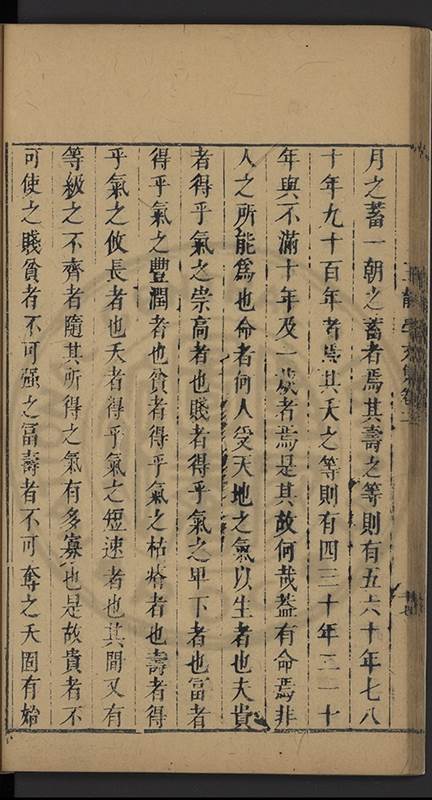 月之蓄一朝之蓄者焉其壽之等則有五六十年七八
十年九十百年者焉其夭之等則有四三十年二一十
年與不滿十年及一歲者焉是其故何哉葢有命焉非
人之所能爲也命者何人受天地之氣以生者也夫貴
者得乎氣之崇高者也賤者得乎氣之卑下者也富者
得乎氣之豐潤者也貧者得乎氣之枯瘠者也壽者得
乎氣之攸長者也夭者得乎氣之短速者也其間又有
等級之不齊者隨其所得之氣有多寡也是故貴者不
可使之賤貧者不可强之富壽者不可奪之夭固有始